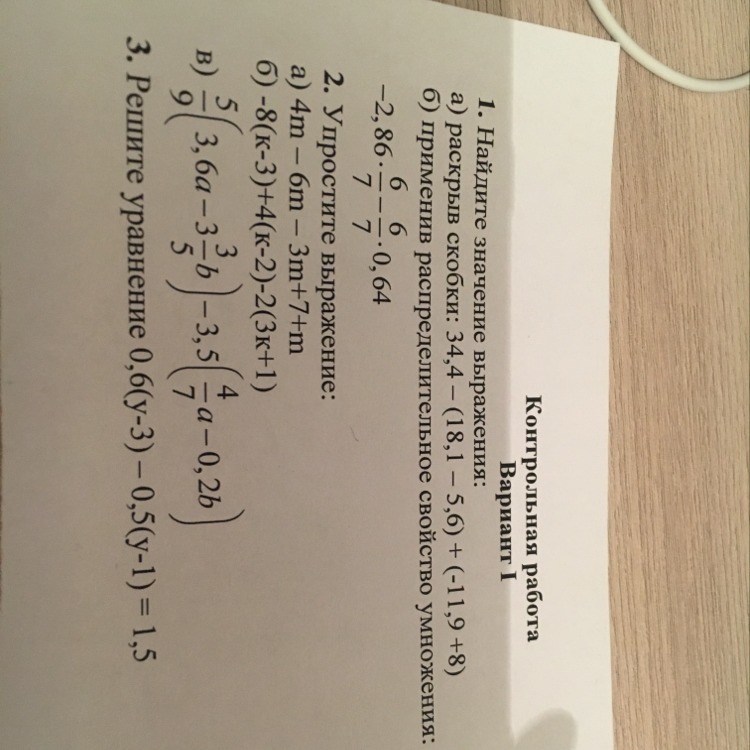 Контрольная работа
Вариант I
1. Найдите значение выражения:
а) раскрыв скобки: 34,4 – (18,1 – 5,6) + (-11,9 +8)
б) применив распределительное свойство умножения:
−2,86·6/7 − 6/7·0,64
2. Упростите выражение:
а) 4m – 6m – 3m+7+m
б) -8(к-3)+4(к-2)-2(3к+1)
в) 5/9(3,6a − 3 3/5 b) − 3,5(4/7 a − 0,2b)
3. Решите уравнение 0,6(у-3) – 0,5(у-1) = 1,5